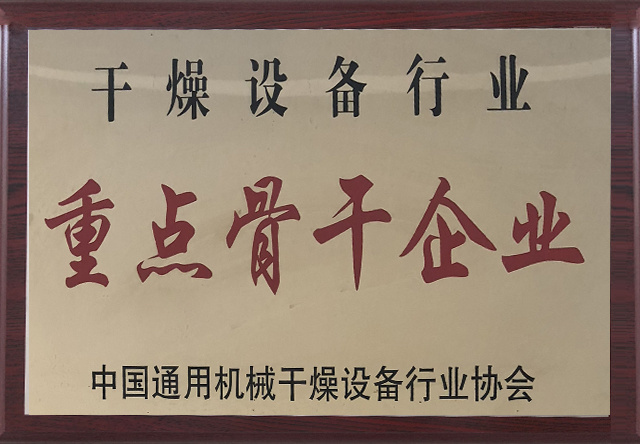 干燥设备行业
重点骨干企业
中国通用机械干燥设备行业协会